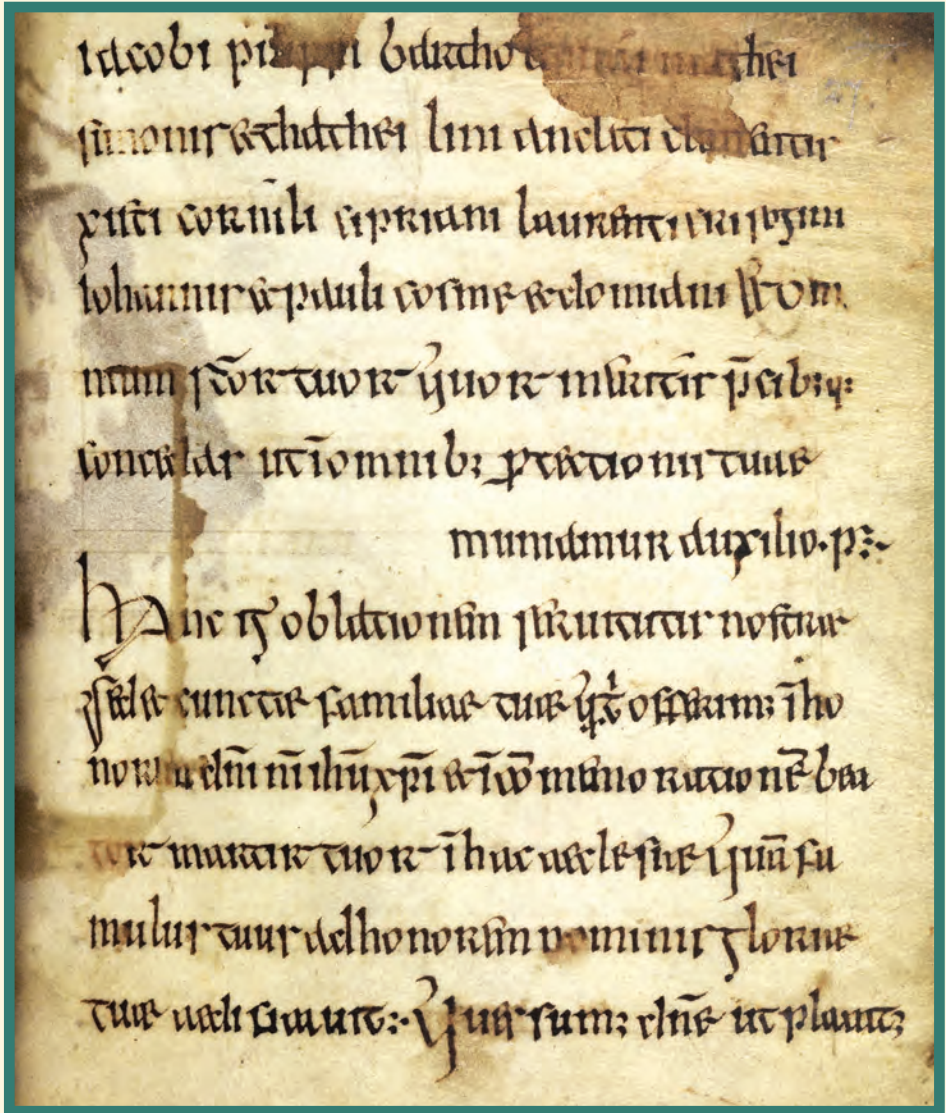 iacobi pilippi bartho mathei
simonis & thathei lini ancliti clementis
xisti cornīli cipriani laurenti crisogini
Iohannis & pauli cosme & domiani & om
nium sc̄or tuor quor meritis p̄cib;q:
concedas ut ī omnib; ꝓtectionis tuae
muniamur auxilio·p:·
Hanc ig oblationem seruitutis nostrae
sed & cunctae familiae tuae offerim; ī ho
norem dn̄i nī ihū xp̄i & ī memorationē bea
tor martir tuor ī hac aeclesiae quā fa
mulus tuus ad honorem nominis gloriae
tuae aedificauit:· Quaesum; dn̄e ut placat;